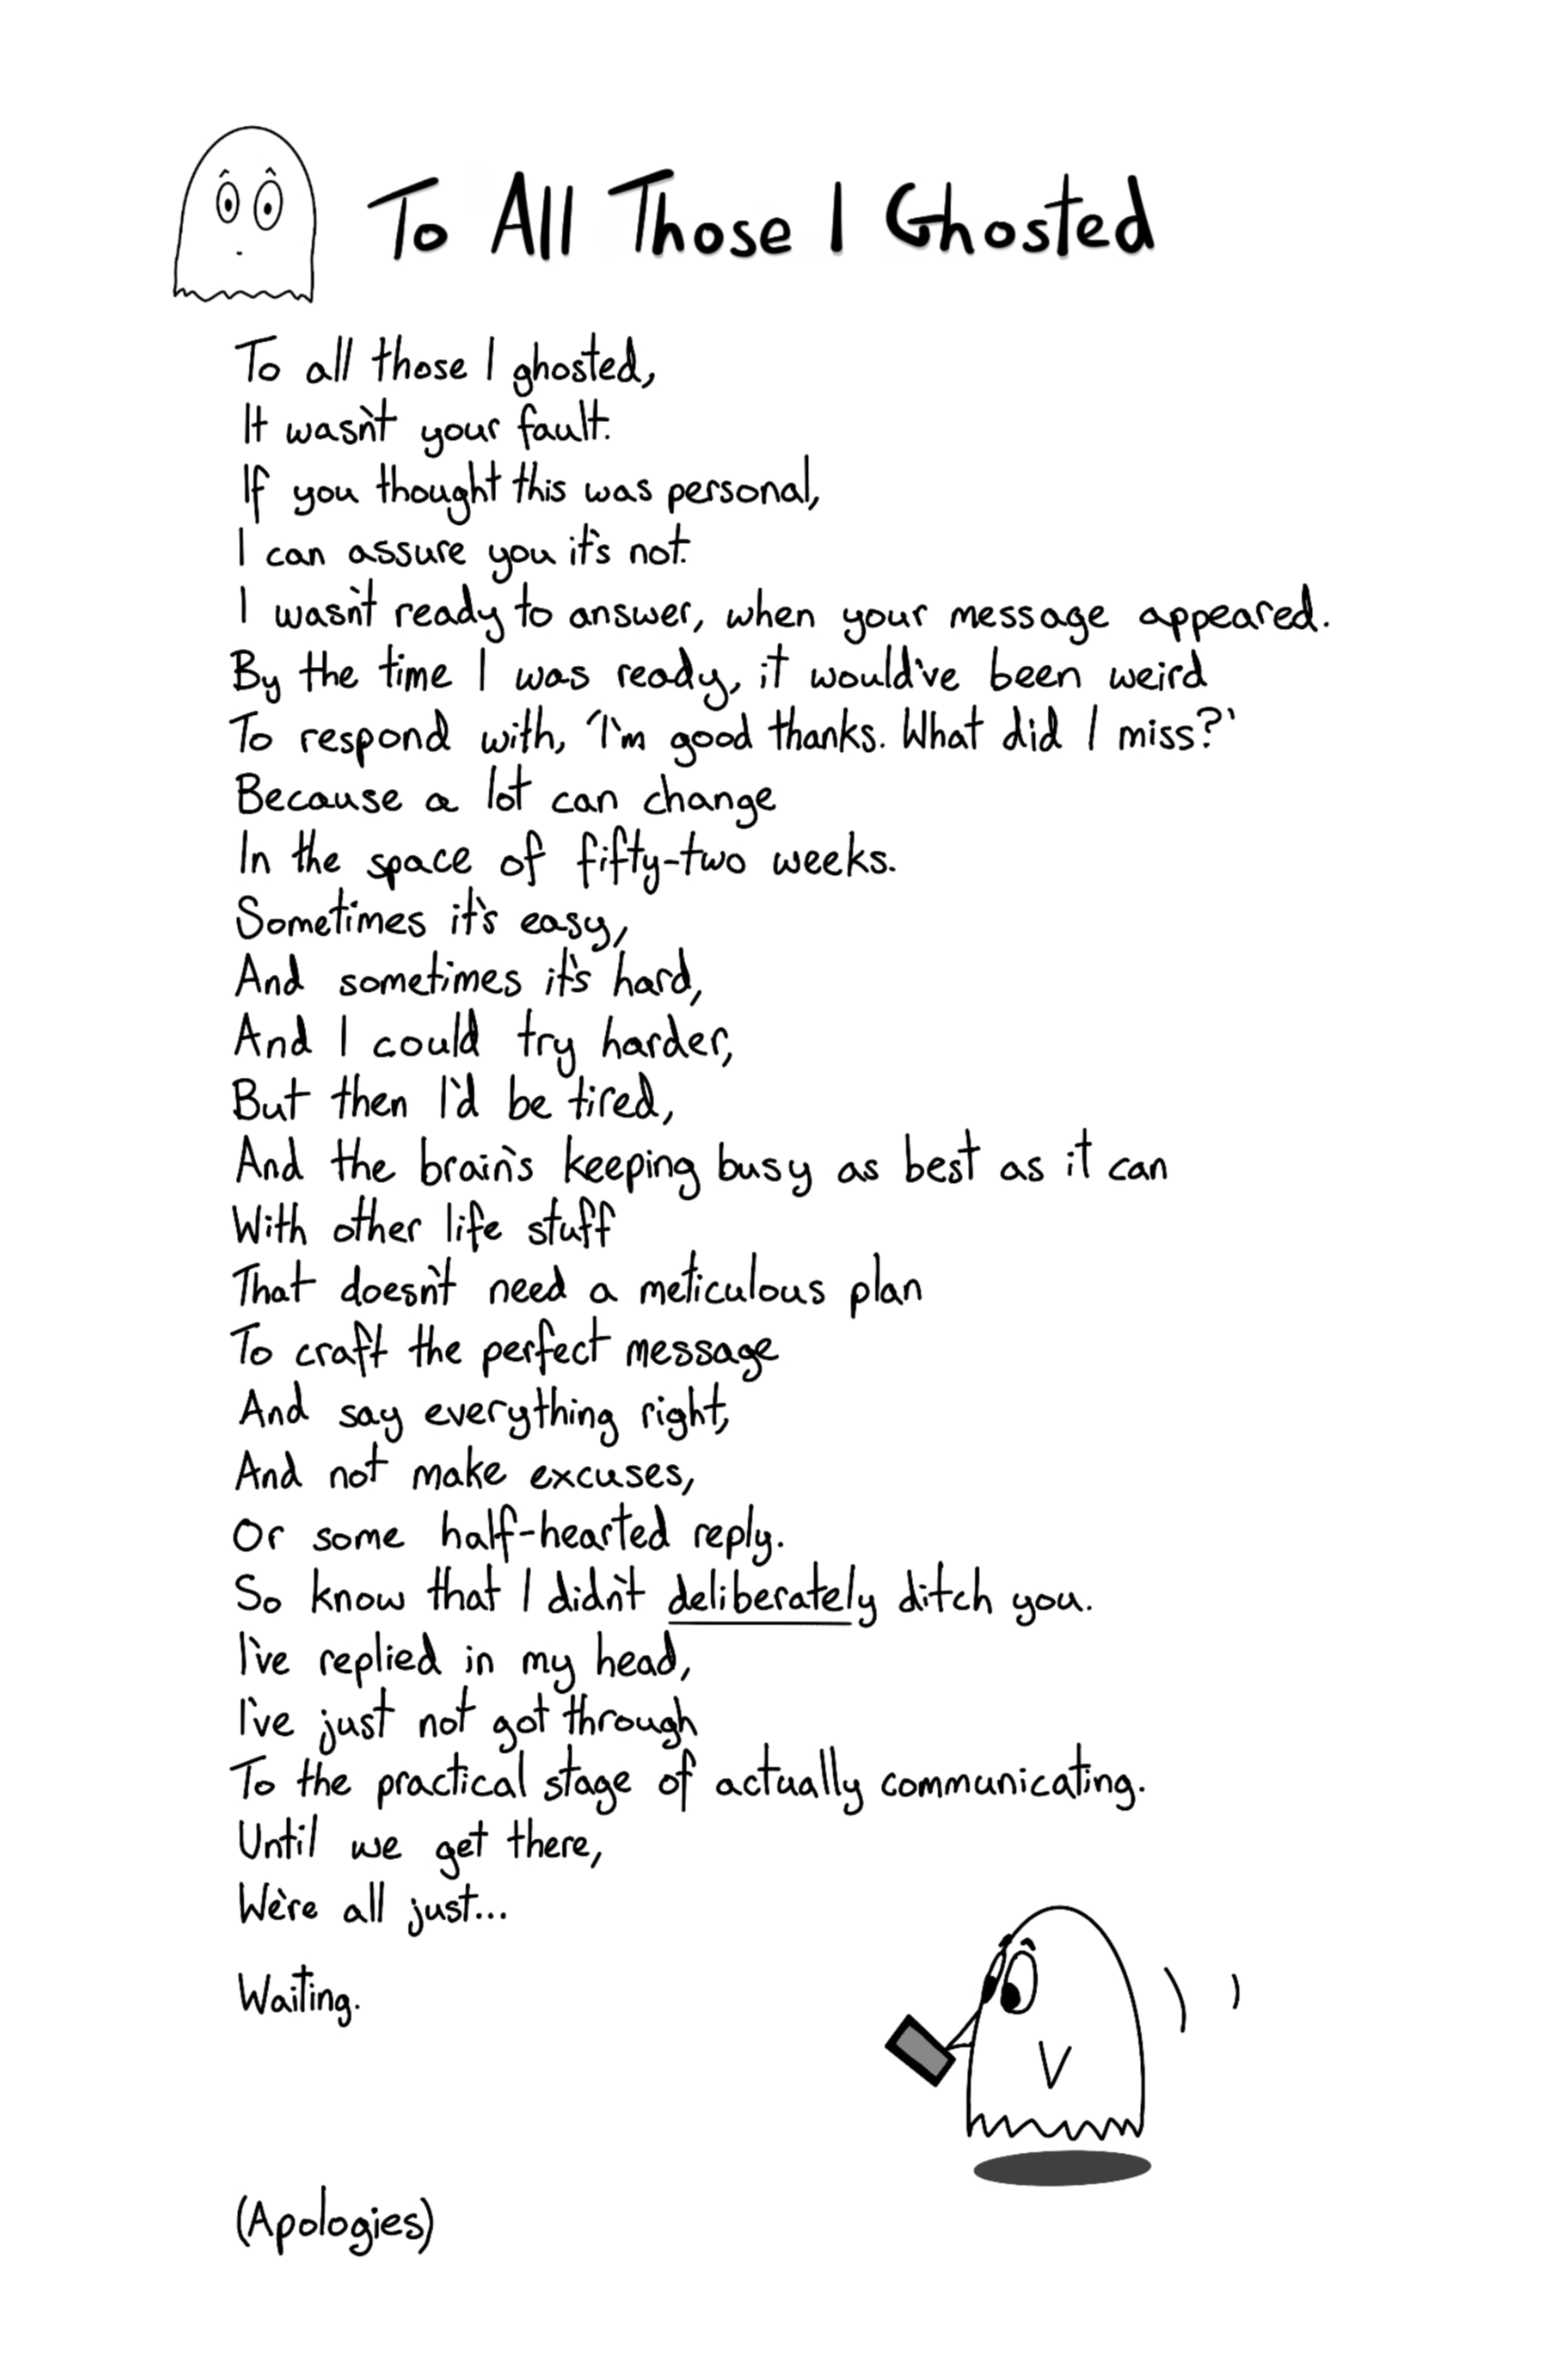 To All Those I Ghosted
To all those I ghosted,
It wasn't your fault.
If you thought this was personal,
I can assure you it's not.
I wasn't ready to answer, when your message appeared.
By the time I was ready, it would've been weird
To respond with, 'I'm good thanks. What did I miss?'
Because a lot can change
In the space of fifty-two weeks.
Sometimes it's easy,
And sometimes it's hard,
And I could try harder,
But then I'd be tired,
And the brain's keeping busy as best as it can
With other life stuff
That doesn't need a meticulous plan
To craft the perfect message
And say everything right,
And not make excuses,
Or some half-hearted reply.
So know that I didn't deliberately ditch you.
I've replied in my head,
I've just not got through
To the practical stage of actually communicating.
Until we get there,
We're all just...
Waiting.
(Apologies)